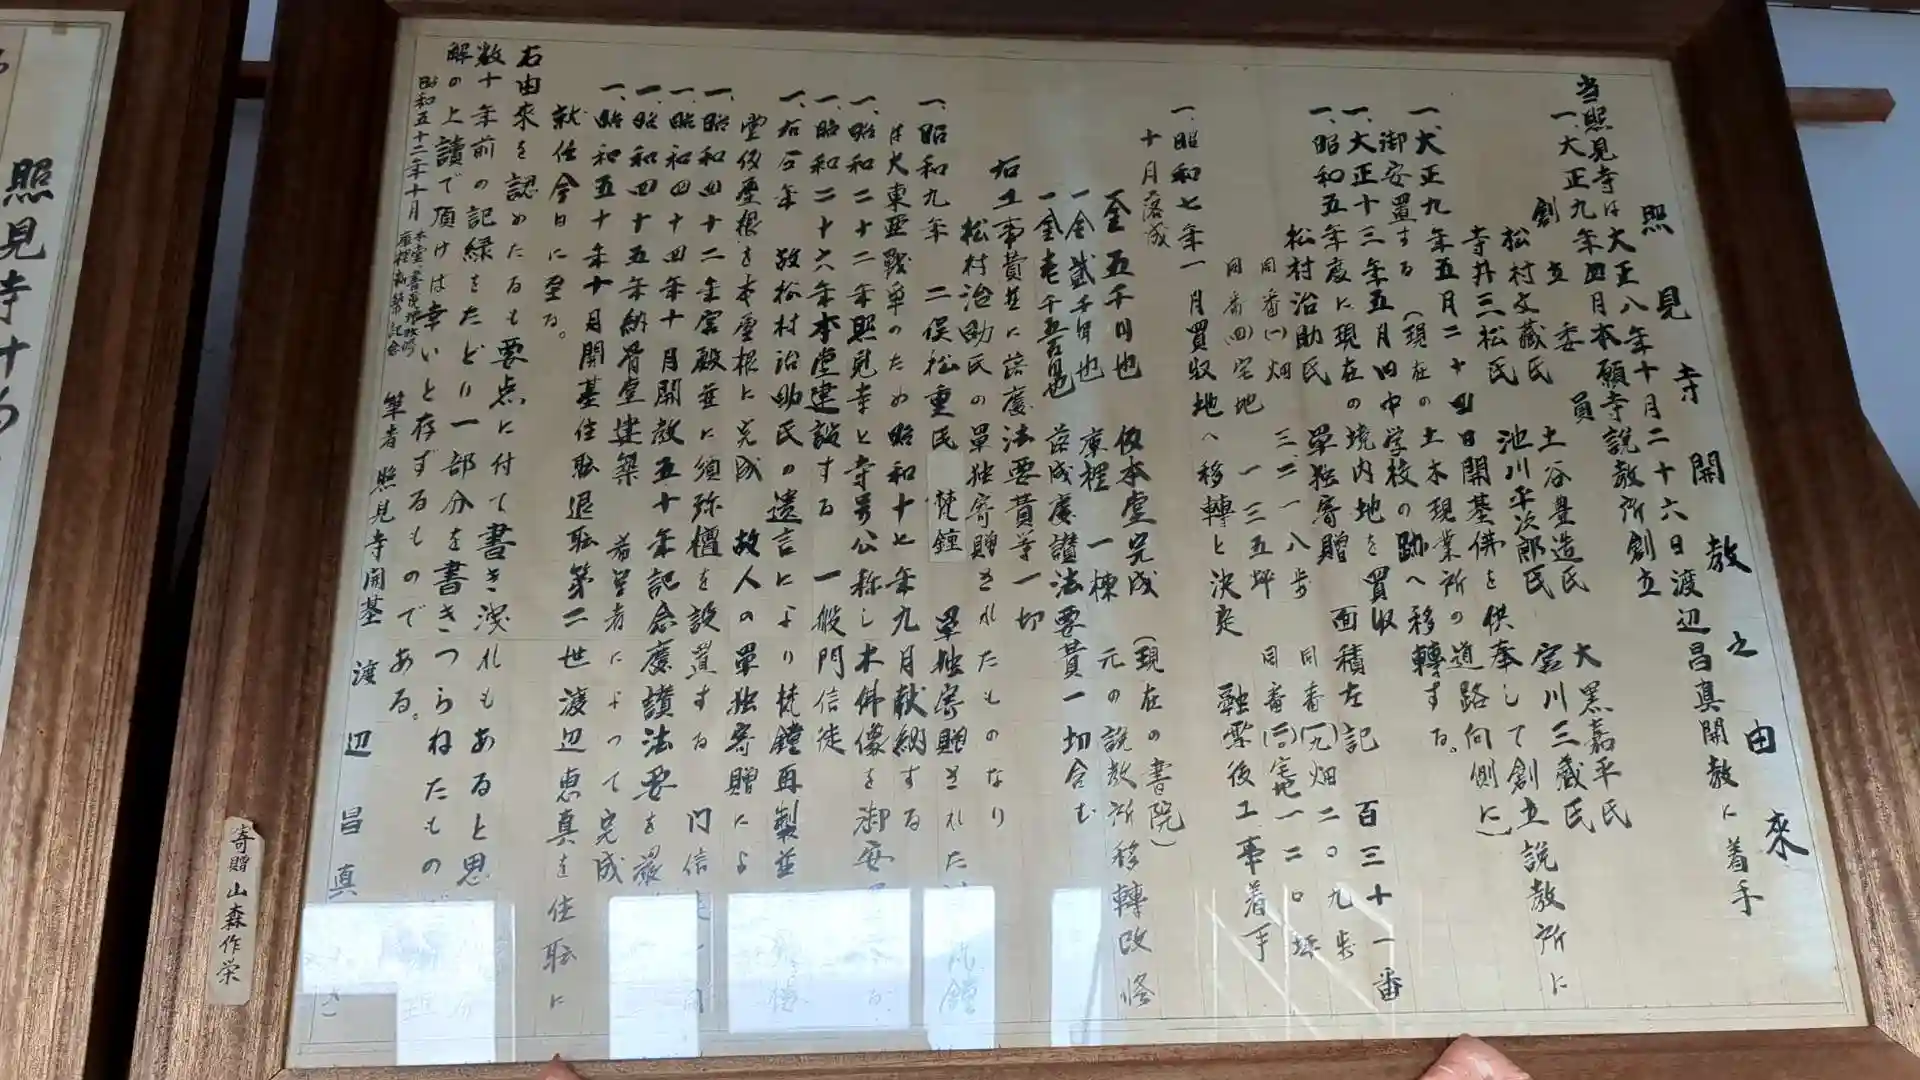 照見寺開教之由来
当照見寺は大正八年十月二十六日渡辺昌真開教に着手
一、大正九年四月本願寺説教所創立
創立委員 土谷豊造氏 大黒嘉平氏
松村文蔵氏 池川平次郎氏 宮川三蔵氏
寺井三松氏
一、大正九年五月二十四日開基佛を供奉して創立説教所に
御安置する(現在の土木現業所の道路向側に)
一、大正十三年五月田中学校の跡へ移轉する。
一、昭和五年度に現在の境内地を買収 面積左記
松村治助氏 單独寄贈 百三十一番
同番(一)畑 三、二一八歩 同番(元)畑二〇九歩
同番(四)宅地 一三五坪 同番(二)宅地一二〇坪
一、昭和七年一月買収地へ移轉と決定 融雪後工事着手
十月落成
金五千円也 仮本堂完成 (現在の書院)
一金弐千円也 庫裡一棟 元の説教所移轉改修
一金壱千五百円也 落成慶讃法要費一切含む
右工事費並に諸慶法要費等一切
松村治助氏の單独寄贈されたものなり
一、昭和九年 二俣松重氏 梵鐘 單独寄贈された
は大東亜戦争のため昭和十七年九月献納する
一、昭和二十二年照見寺と寺号公称し木佛像を御安
一、昭和二十六年本堂建設する 一般門信徒
一、右同年 故松村治助氏の遺言により梵鐘再製並
堂仮屋根を本屋根に完成 故人の單独寄贈によ
一、昭和四十二年宮殿並に須弥檀を設置する 門信徒一同
一、昭和四十四年十月開教五十年記念慶讃法要を厳
一、昭和四十五年納骨堂建築 希望者によって完成
一、昭和五十年十月開基住職退職第二世渡辺恵真を住職に
就任今日に至る。
右由来を認めたるも要点に付て書き洩れもあると思
数十年前の記録をたどり一部分を書きつらねたもの
解の上讀で頂けは幸いと存ずるものである。
昭和五十二年十月 本堂書院増改修 庫裡新築記念
筆者 照見寺開基 渡辺昌真
寄贈 山森作栄
照見寺十